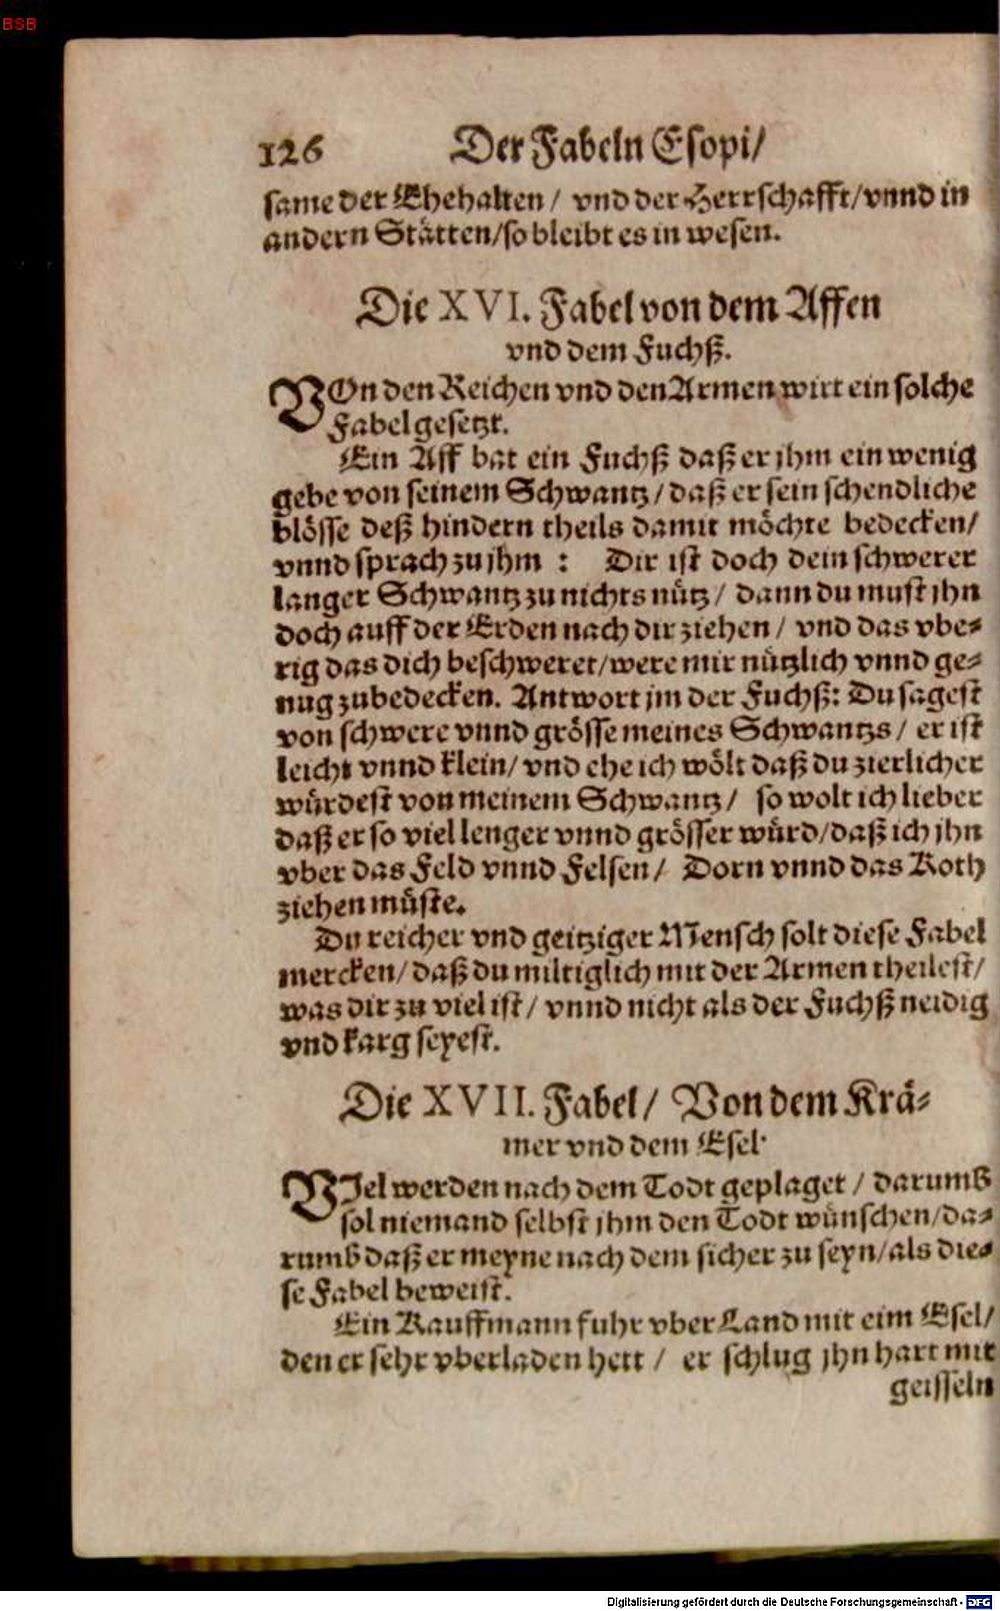 BSB
126 Der Fabeln Esopi/
same der Ehehalten / vnd der Herrschafft/vnnd in
andern Stätten/so bleibt es in wesen.
Die XVI. Fabel von dem Affen
vnd dem Fuchß.
VOn den Reichen vnd den Armen wirt ein solche
Fabel gesetzt.
Ein Aff bat ein Fuchß daß er jhm ein wenig
gebe von seinem Schwantz / daß er sein schendliche
blösse deß hindern theils damit möchte bedecken/
vnnd sprach zu jhm : Dir ist doch dein schwerer
langer Schwantz zu nichts nütz / dann du must jhn
doch auff der Erden nach dir ziehen / vnd das vbe-
rig das dich beschweret/were mir nützlich vnnd ge-
nug zubedecken. Antwort jm der Fuchß: Du sagest
von schwere vnnd grösse meines Schwantzs / er ist
leicht vnnd klein/ vnd ehe ich wölt daß du zierlicher
würdest von meinem Schwantz / so wolt ich lieber
daß er so viel lenger vnnd grösser würd/daß ich jhn
vber das Feld vnnd Felsen / Dorn vnnd das Koth
ziehen müste.
Du reicher vnd geitziger Mensch solt diese Fabel
mercken/daß du miltiglich mit der Armen theilest/
was dir zu viel ist / vnnd nicht als der Fuchß neidig
vnd karg seyest.
Die XVII. Fabel / Von dem Krä-
mer vnd dem Esel.
VJel werden nach dem Todt geplaget / darumb
sol niemand selbst jhm den Todt wünschen/da-
rumb daß er meyne nach dem sicher zu seyn/als die-
se Fabel beweist.
Ein Kauffmann fuhr vber Land mit eim Esel/
den er sehr vberladen hett / er schlug jhn hart mit
geisseln
Digitalisierung gefördert durch die Deutsche Forschungsgemeinschaft - DFG